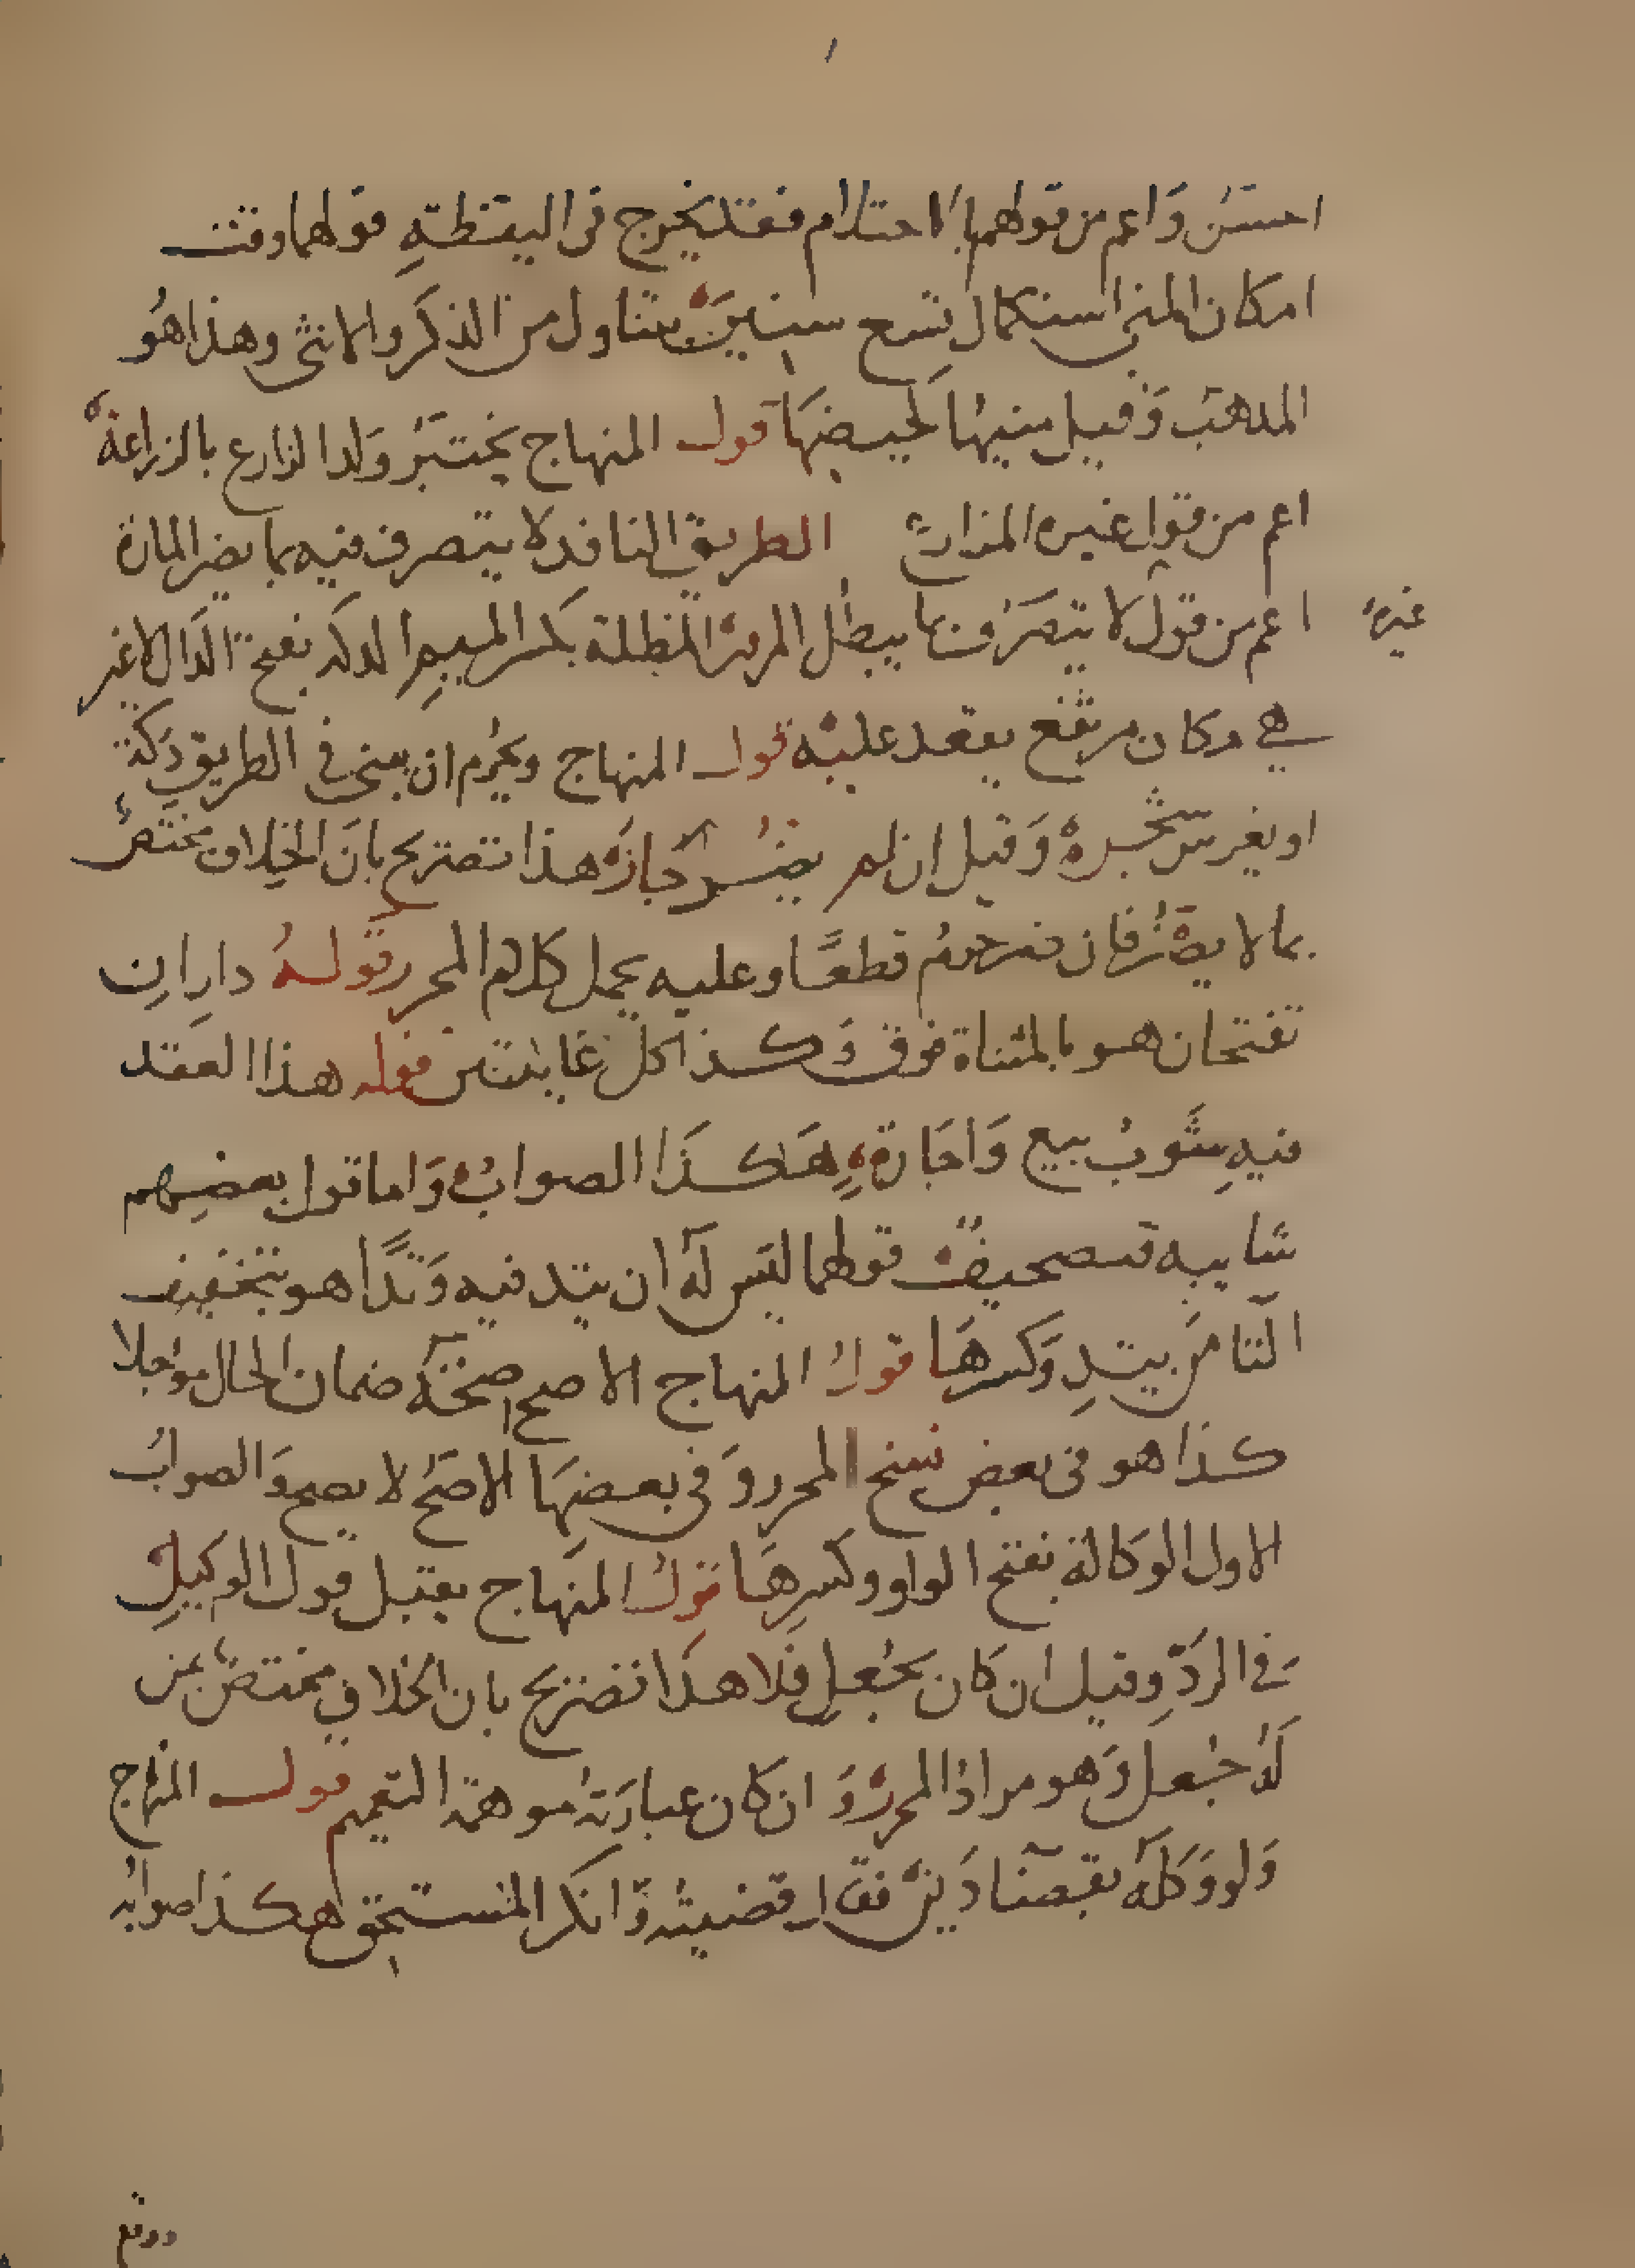 احسن وَاعم من قولهما بالاحتلام فقد يخرج في اليقظةِ قولهما وقت
امكان المني استكمال تسع سنين يتناول من الذكر والانثى وهذا هُو
المذهب وَقيل منيها كحيضهَا قول المنهاج يختبَرُ وَلد الزارع بالزراعة
اعم من قول غيره المزارع الطريق النافذ لا يتصرف فيه بما يضر المارة
غيره
اعم من قول لا يتصرف بما يبطل المرور المظلة بكسر الميم الدكه بفتح الدال لا غير
هي مكان مرتفع يقعد عليه قول المنهاج ويحرُم ان يبنى في الطريق دَكة
او يغرس شجرة وَقيل ان لم يضُر جاز هذا تصريح بان الخلاف مختص
بما لا يضر فان ضر حرم قطعًا وعليه يحمل كلام المحرر قولهُ دارانِ
تفتحان هو بالمثناة فوق وَكذا كل غايبتين قوله هذا العقد
فيهِ شَوبُ بيع وَاجَارة هَكذَا الصوابُ وَاما قول بعضِهم
شايبه فتصحيف قولهما ليس لهُ ان يتد فيه وَتدًا هو بتخفيف
التا من يتدِ وَكسرهَا قول المنهاج الاصح صحة ضمان الحال مؤجلا
كذا هو في بعض نسخ المحرر وَفي بعضهَا الاصَحُ لا يصح وَالصوابُ
الاول الوكالة بفتح الواو وكسرِهَا قول المنهاج يقبل قول الوكيلِ
في الردِّ وقيل ان كان بجُعلٍ فلا هذا تصريح بان الخلاف مختص بمن
لهُ جُعل وَهو مراد المحرر وَان كان عبارَتهُ موهمة التعميم قول المنهاج
وَلو وَكلهُ بقضَا دَين فقال قضيتُه وَانكر المستحق هكذا صوابُه
ووقع